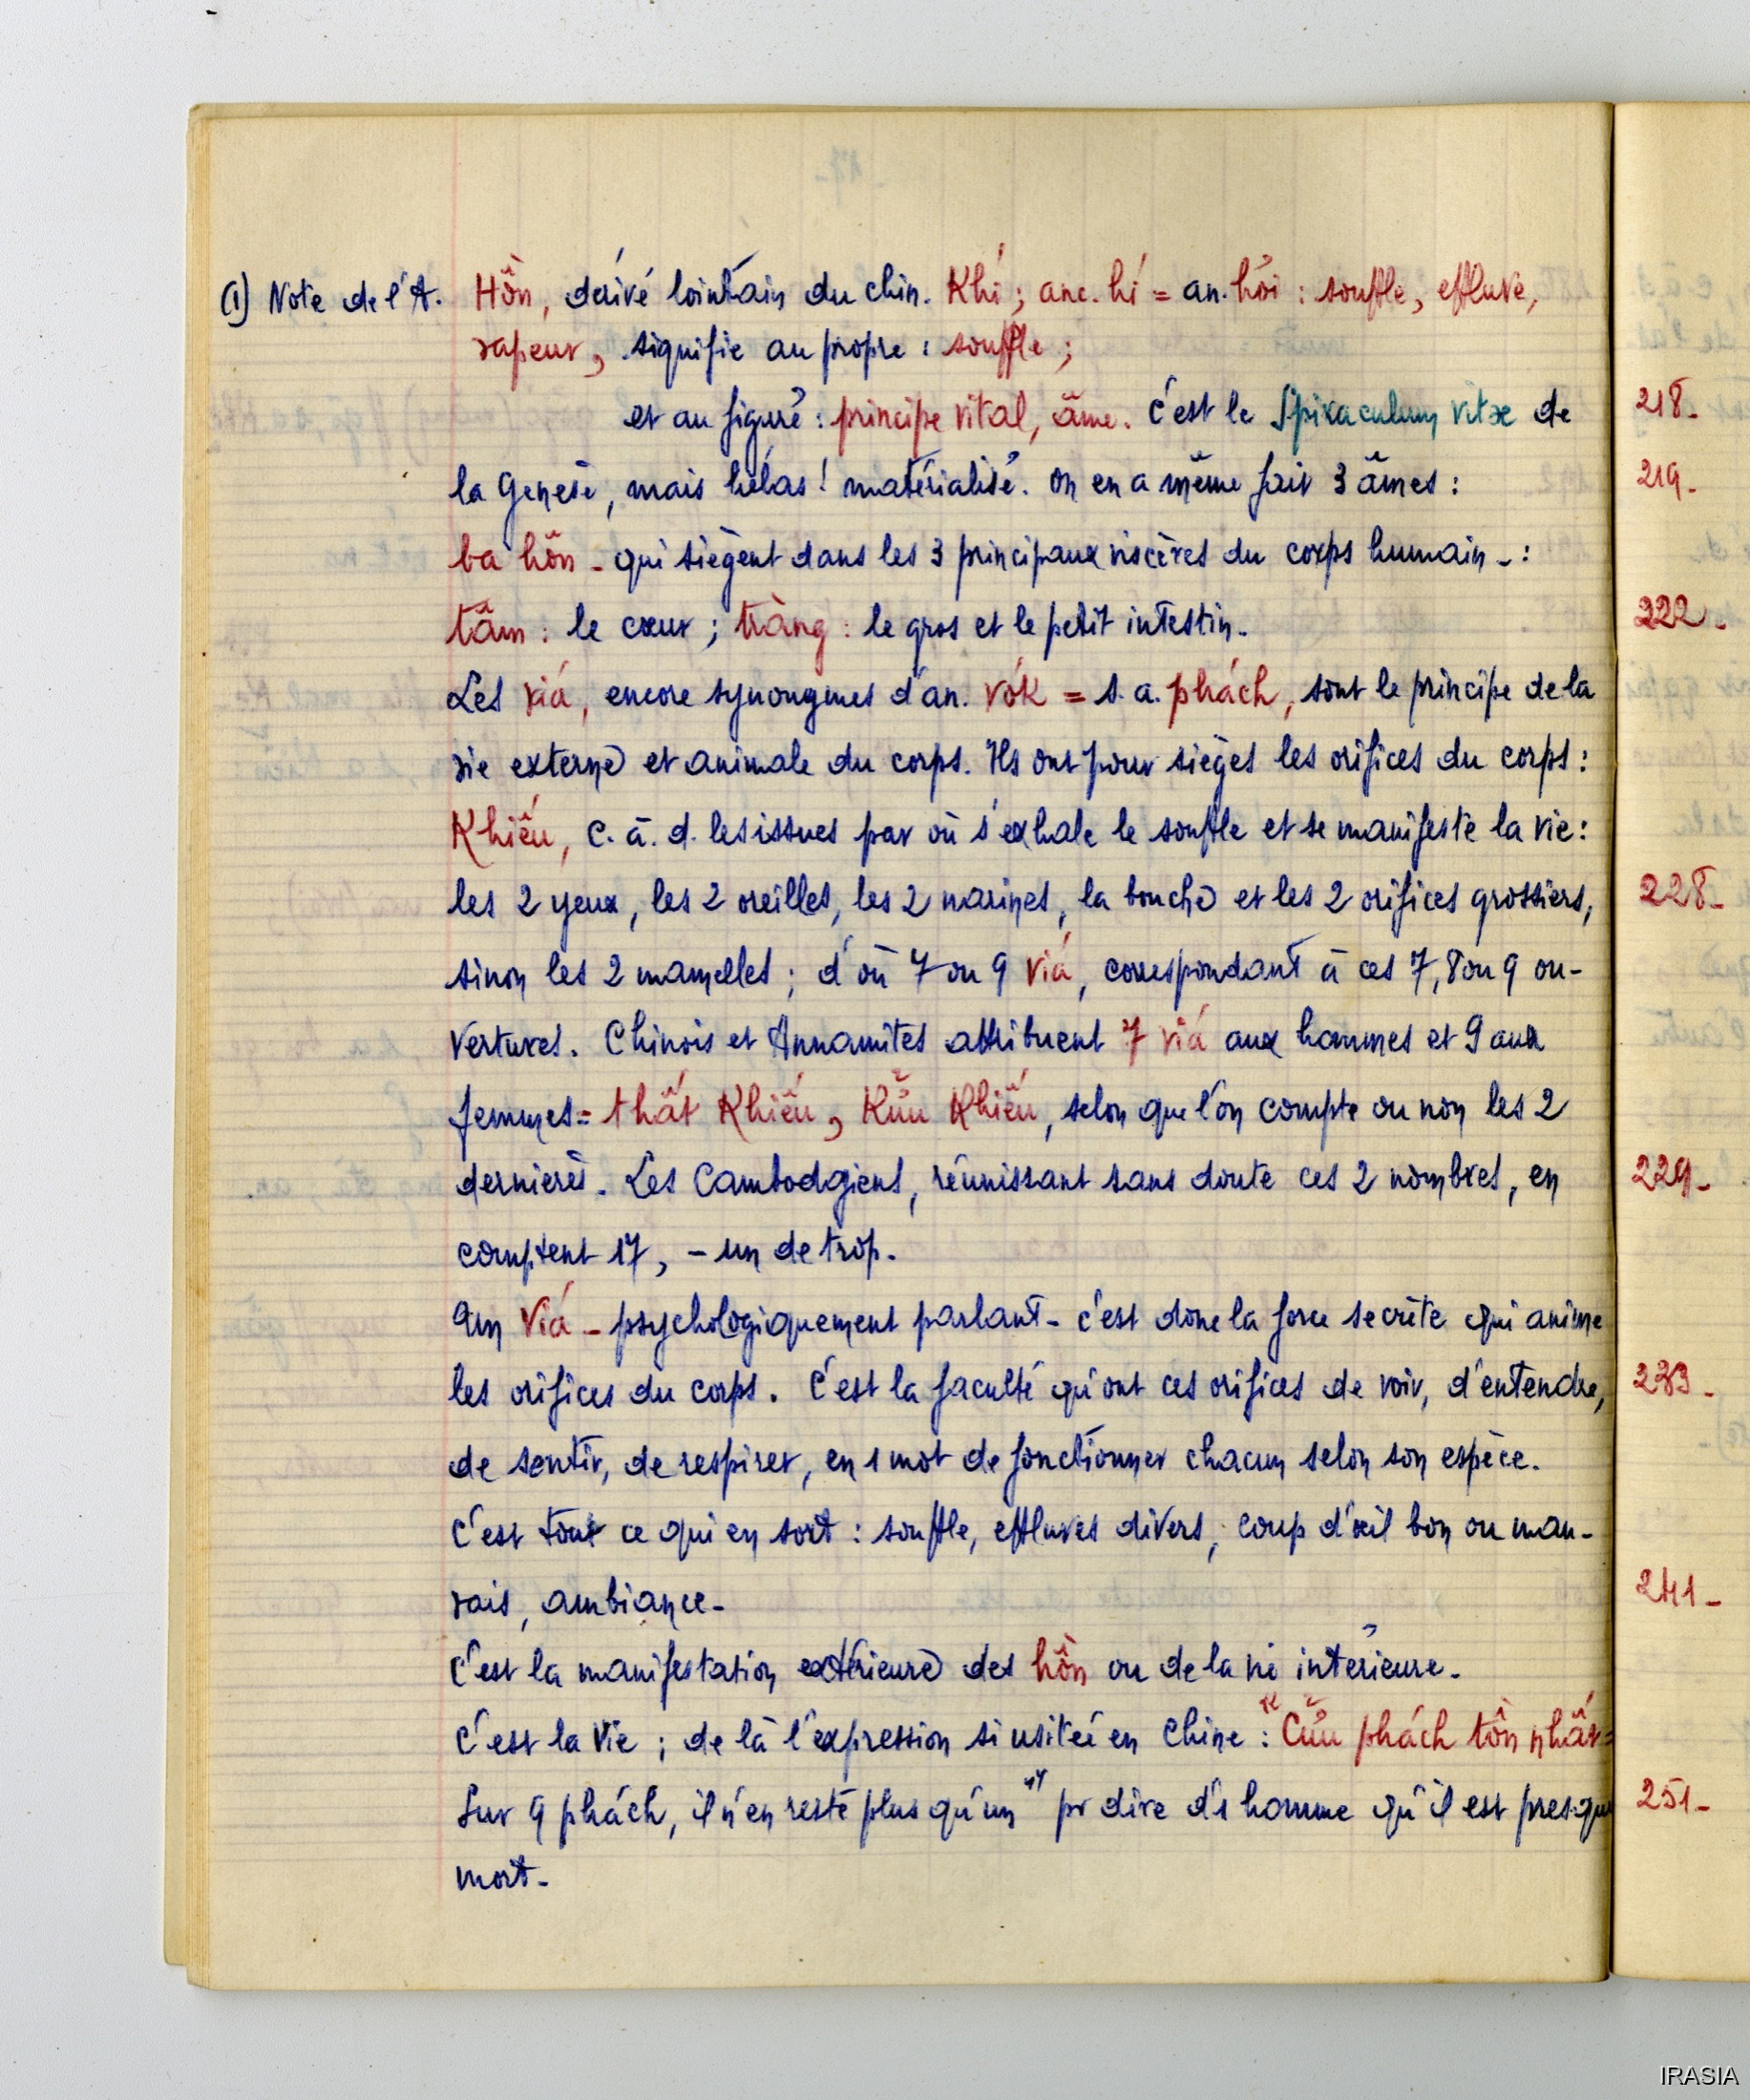 (1) Note de l'A. Hồn, dérivé lointain du chin. Khí ; anc. hí = an. hơi : souffle, effluve,
vapeur, signifie au propre : souffle ;
et au figuré : principe vital, âme. C'est le Spiraculum vitae de
la Genèse, mais hélas ! matérialisé. On en a même fait 3 âmes :
ba hồn - qui siègent dans les 3 principaux viscères du corps humain - :
tâm : le cœur ; tràng : le gros et le petit intestin.
Les viá, encore synonymes d'an. vók = s. a. phách, sont le principe de la
vie externe et animale du corps. Ils ont pour sièges les orifices du corps :
Khiếu, c. à. d. les issues par où s'exhale le souffle et se manifeste la vie :
les 2 yeux, les 2 oreilles, les 2 narines, la bouche et les 2 orifices grossiers,
sinon les 2 mamelles ; d'où 7 ou 9 viá, correspondant à ces 7, 8 ou 9 ou-
vertures. Chinois et Annamites attribuent 7 viá aux hommes et 9 aux
femmes = thất Khiếu, Kửu Khiếu, selon que l'on compte ou non les 2
dernières. Les Cambodgiens, réunissant sans doute ces 2 nombres, en
comptent 17, - un de trop.
Un Viá - psychologiquement parlant - c'est donc la force secrète qui anime
les orifices du corps. C'est la faculté qu'ont ces orifices de voir, d'entendre,
de sentir, de respirer, en 1 mot de fonctionner chacun selon son espèce.
C'est tout ce qui en sort : souffle, effluves divers, coup d'œil bon ou mau-
vais, ambiance -
C'est la manifestation extérieure des hồn ou de la vie intérieure.
C'est la Vie ; de là l'expression si usitée en Chine : "Cửu phách tồn nhất =
Sur 9 phách, il n'en reste plus qu'un" pr dire d'1 homme qu'il est presque
mort -
218 -
219 -
222 -
228 -
229 -
233 -
241 -
251 -
IRASIA